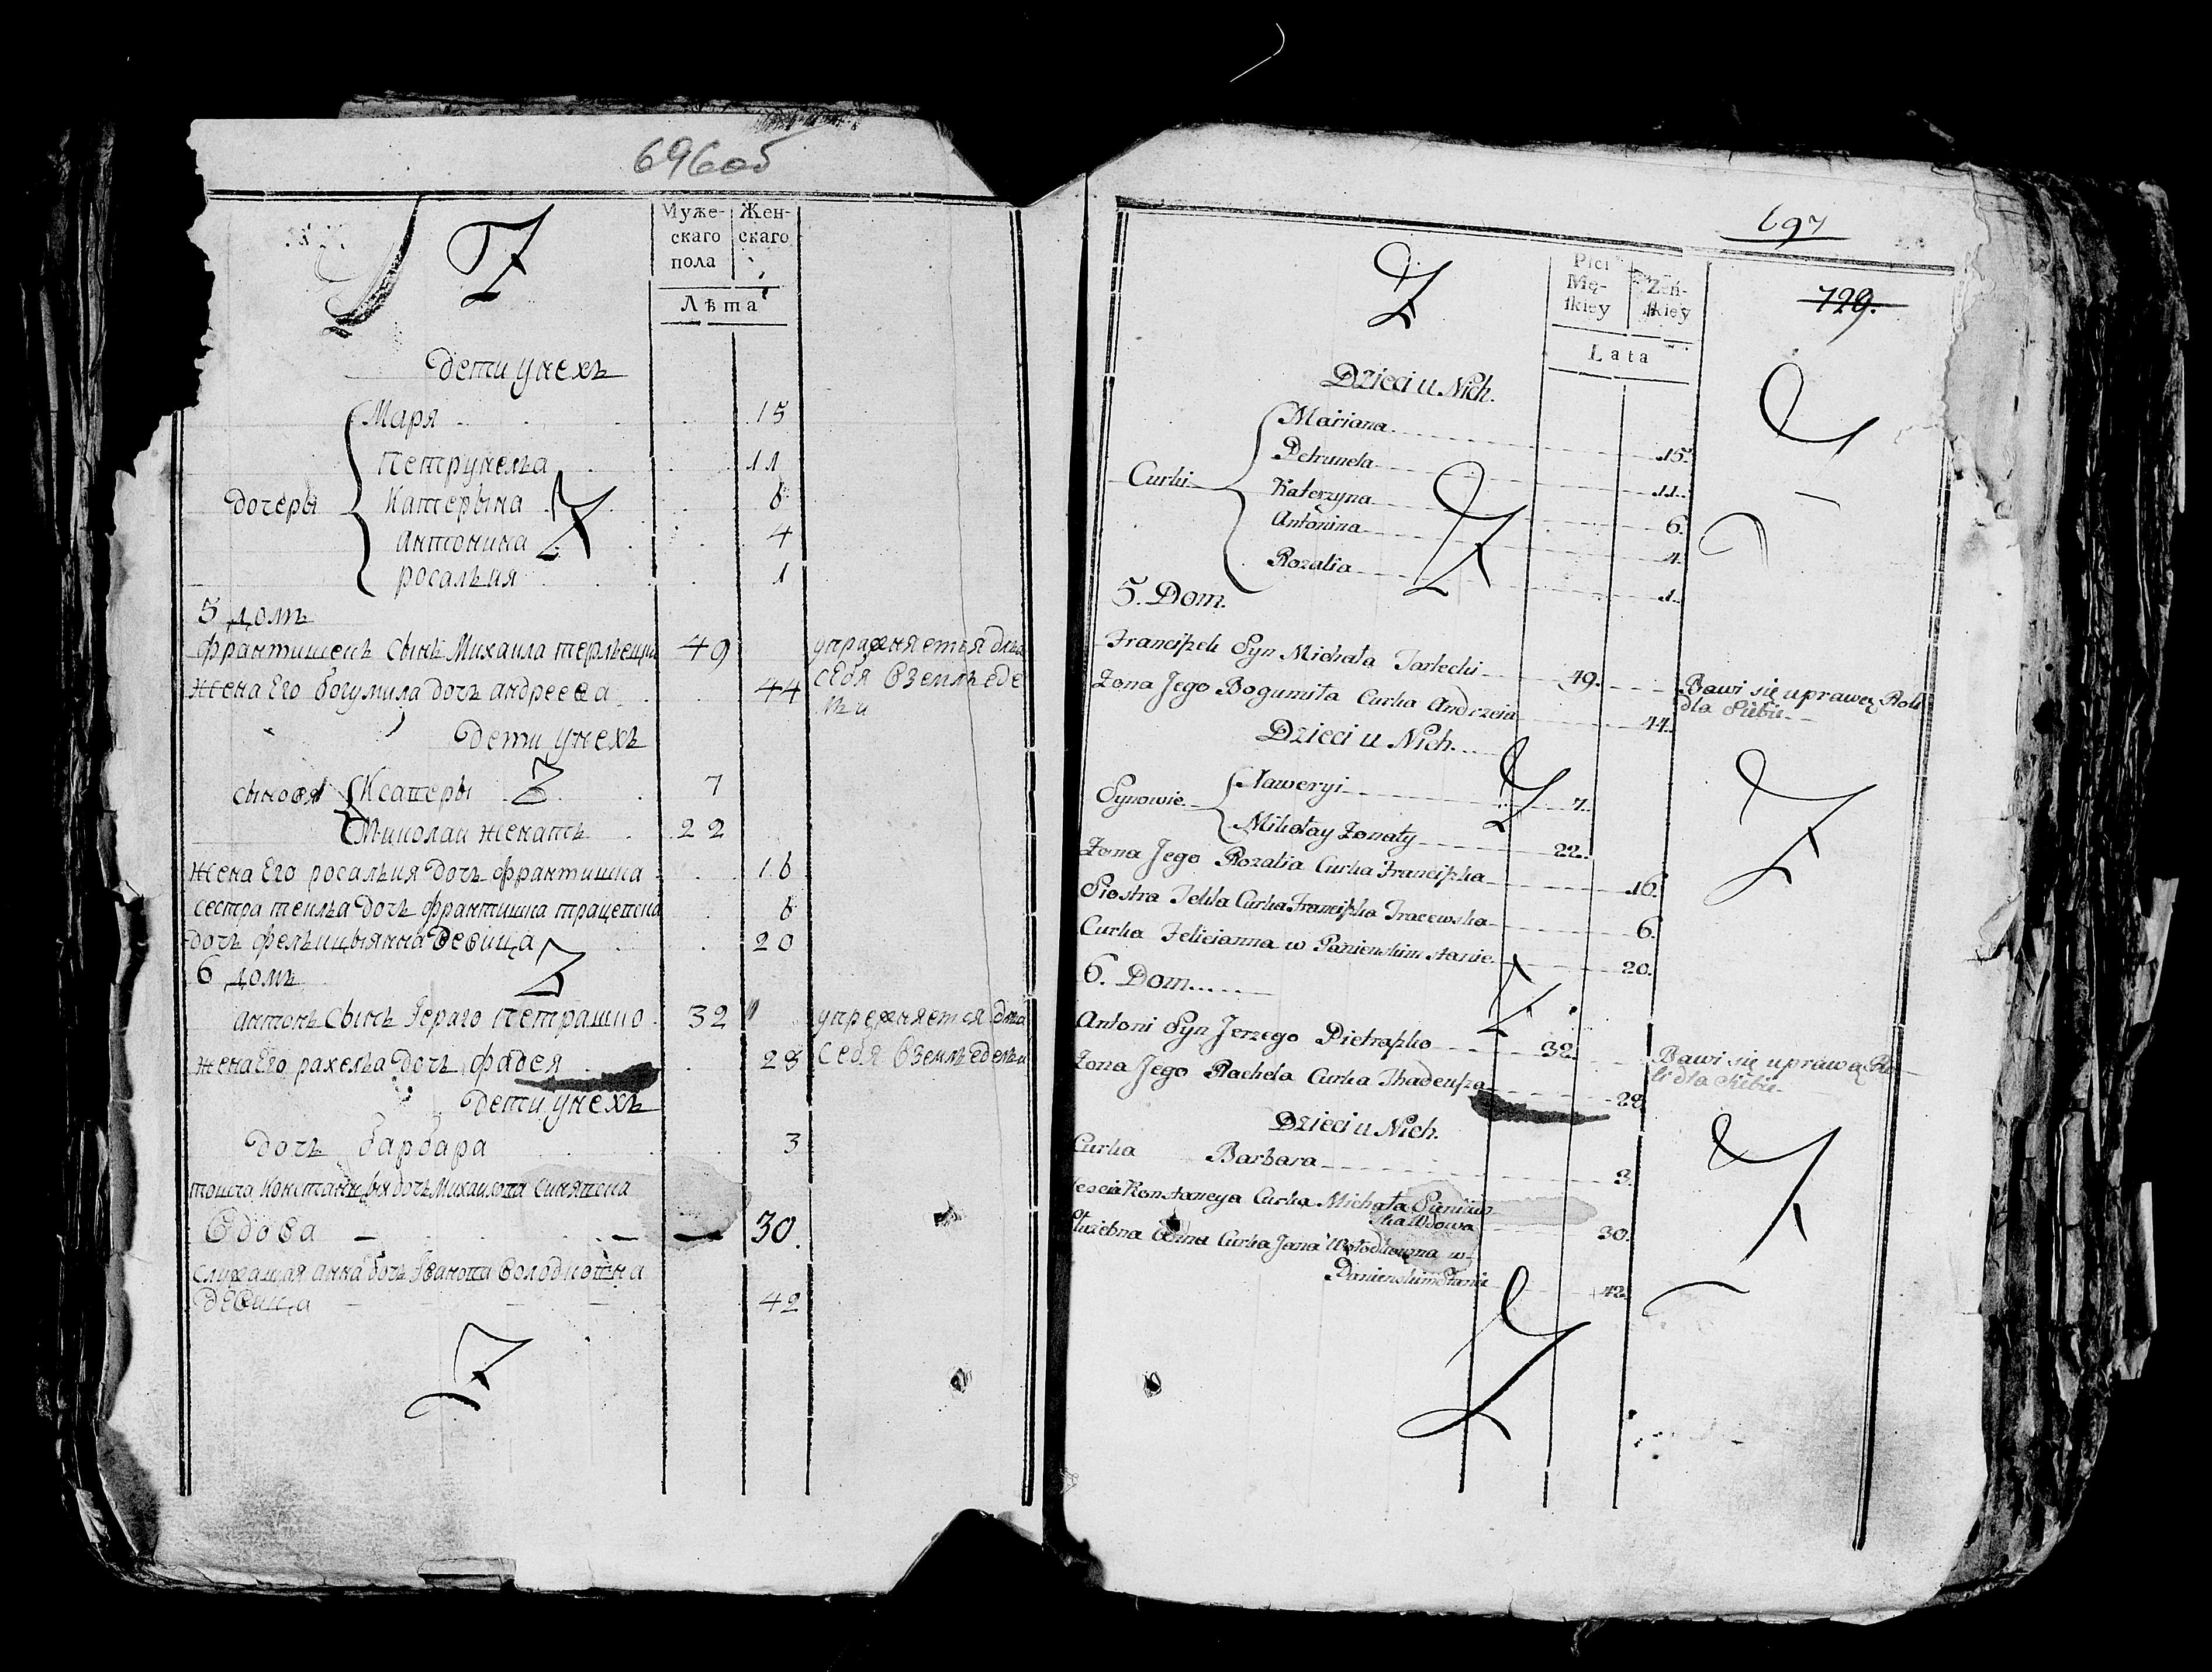 696об
Муже-
скаго
пола
Жен-
скаго
Лѣта
Дети Унехъ
Маря 15
Петрунеля 11
дочеры
Катерына 6
Антонина 4
росалъия 1
5 домъ
франтишекъ Сынъ Михаила терлецки 49
упражняетъся для
себя вземлъеде
лъи
жена Его богумила дочъ андреева 44
Дети Унехъ
сыновя Ксаверы 7
Миколаи женатъ 22
жена Его росалъия дочъ франтишка 16
сестра текля дочъ франтишка трацевска 6
дочъ фелъицыянна девица 20
6 домъ
антонъ Сынъ Герзего Петрашко 32
упрежняется для
себя вземлъеделъи
жена Его рахелъа дочъ фадея 28
Дети унехъ
дочъ барбара 3
Вдова 30.
служащая анна дочъ Ивановна Володковна
девица 42
697
729.
Płci
Mę-
skiey
Żeń-
skiey
Lata
Dzieci u Nich.
Mariana 15.
Petrunela 11.
Curki
Katerzyna 6.
Antonina 4.
Rozalia 1.
5. Dom.
Franciszek Syn Michała Tarlecki 49.
Bawi się uprawą Roli
dla Siebie
Żona Jego Bogumiła Curka Andrzeia 44.
Dzieci u Nich.
Synowie
Xaweryi 7.
Mikołay Żonaty 22.
Żona Jego Rozalia Curka Franciszka 16.
Siostra Tekla Curka Franciszka Tracewska 6.
Curka Felicianna w Panienskim stanie 20.
6. Dom.
Antoni Syn Jerzego Pietraszko 32.
Bawi się uprawą Ro
li dla Siebie
Żona Jego Rachela Curka Thadeusza 28.
Dzieci u Nich.
Curka Barbara 3.
Konstancya Curka Michała Sieniew
ska Wdowa 30.
służebna Anna Curka Jana Wołodkowna w
Panienskim Stanie 42.